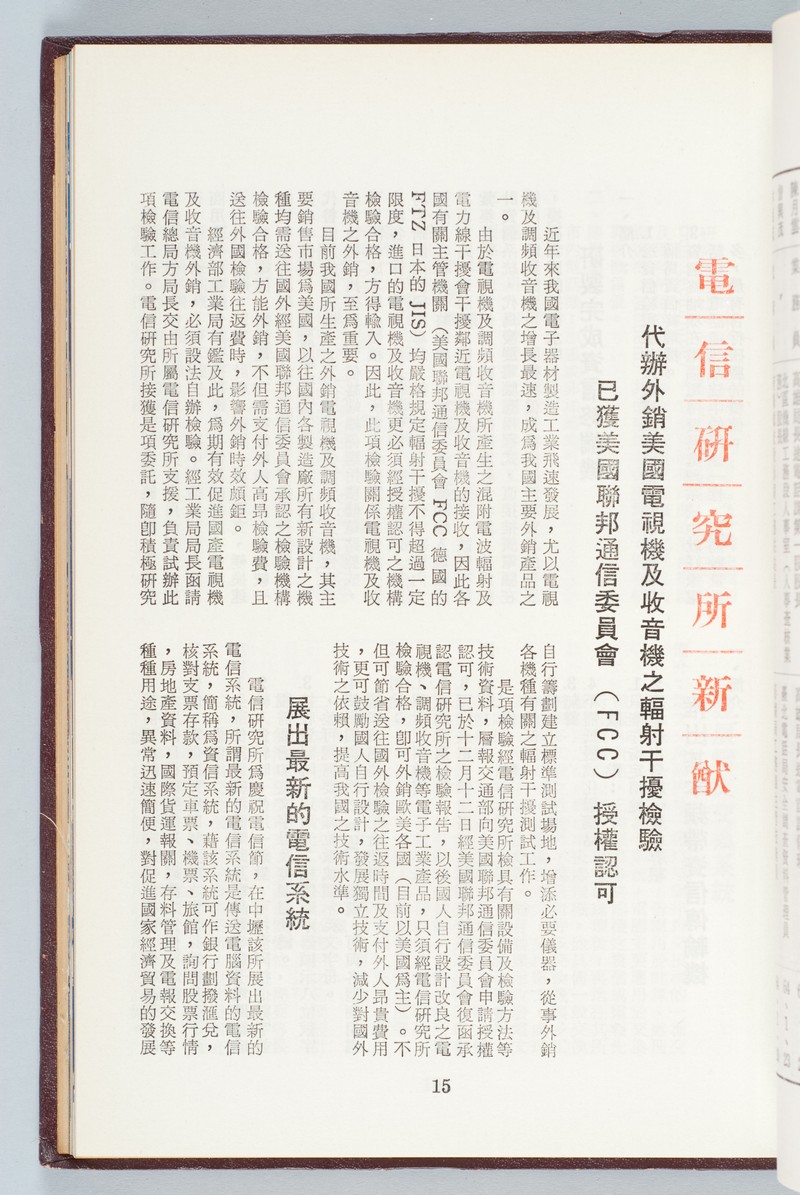 電信研究所新猷
代辦外銷美國電視機及收音機之輻射干擾檢驗
已獲美國聯邦通信委員會（FCC）授權認可
近年來我國電子器材製造工業飛速發展，尤以電視
機及調頻收音機之增長最速，成爲我國主要外銷產品之
一。
由於電視機及調頻收音機所產生之混附電波輻射及
電力線干擾會干擾鄰近電視機及收音機的接收，因此各
國有關主管機關（美國聯邦通信委員會 FCC 德國的
FTZ 日本的 JIS）均嚴格規定輻射干擾不得超過一定
限度，進口的電視機及收音機更必須經授權認可之機構
檢驗合格，方得輸入。因此，此項檢驗關係電視機及收
音機之外銷，至爲重要。
目前我國所生產之外銷電視機及調頻收音機，其主
要銷售市場爲美國，以往國內各製造廠所有新設計之機
種均需送往國外經美國聯邦通信委員會承認之檢驗機構
檢驗合格，方能外銷，不但需支付外人高昂檢驗費，且
送往外國檢驗往返費時，影響外銷時效頗鉅。
經濟部工業局有鑑及此，爲期有效促進國產電視機
及收音機外銷，必須設法自辦檢驗。經工業局局長函請
電信總局方局長交由所屬電信研究所支援，負責試辦此
項檢驗工作。電信研究所接獲是項委託，隨卽積極研究
自行籌劃建立標準測試場地，增添必要儀器，從事外銷
各機種有關之輻射干擾測試工作。
是項檢驗經電信研究所檢具有關設備及檢驗方法等
技術資料，層報交通部向美國聯邦通信委員會申請授權
認可，已於十二月十二日經美國聯邦通信委員會復函承
認電信研究所之檢驗報告，以後國人自行設計改良之電
視機、調頻收音機等電子工業產品，只須經電信研究所
檢驗合格，卽可外銷歐美各國（目前以美國爲主）。不
但可節省送往國外檢驗之往返時間及支付外人昂貴費用
，更可鼓勵國人自行設計，發展獨立技術，減少對國外
技術之依賴，提高我國之技術水準。
展出最新的電信系統
電信研究所爲慶祝電信節，在中壢該所展出最新的
電信系統，所謂最新的電信系統是傳送電腦資料的電信
系統，簡稱爲資信系統，藉該系統可作銀行劃撥滙兌，
核對支票存款，預定車票、機票、旅館，詢問股票行情
，房地產資料，國際貨運報關，存料管理及電報交換等
種種用途，異常迅速簡便，對促進國家經濟貿易的發展
15